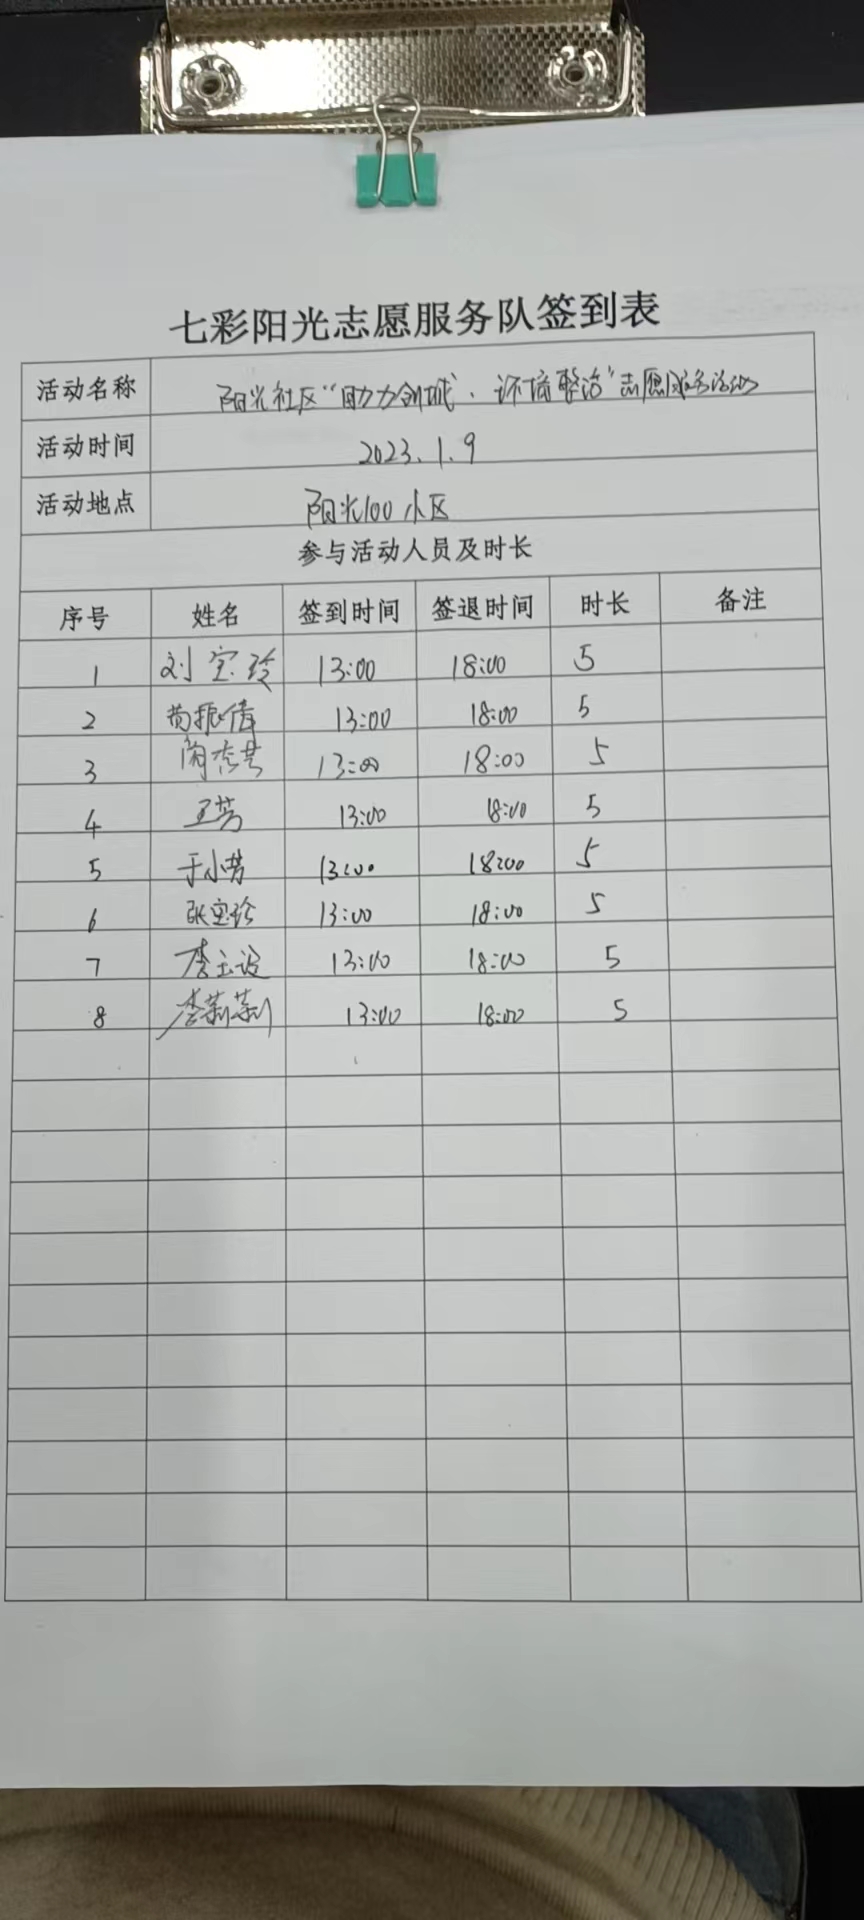 七彩阳光志愿服务队签到表
活动名称 阳光社区“助力创城、环境整治”志愿服务活动
活动时间 2023.1.9
活动地点 阳光100小区
参与活动人员及时长
序号 姓名 签到时间 签退时间 时长 备注
1 刘宝玲 13:00 18:00 5
2 苟振倩 13:00 18:00 5
3 13:00 18:00 5
4 王芳 13:00 18:00 5
5 于小芳 13:00 18:00 5
6 张宝珍 13:00 18:00 5
7 李玉波 13:00 18:00 5
8 李莉莉 13:00 18:00 5